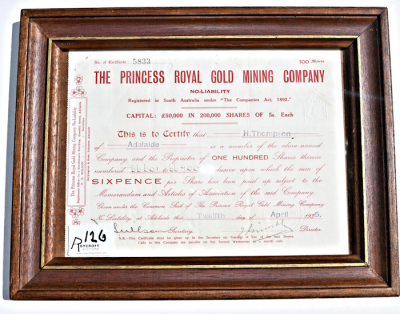 No. of Certificate 5833 100 Shares
THE PRINCESS ROYAL GOLD MINING COMPANY
NO-LIABILITY
Registered in South Australia under "The Companies Act, 1892."
CAPITAL: £50,000 IN 200,000 SHARES OF 5s. Each
This is to Certify that H.Thompson
of Adelaide is a member of the above-named
Company and the Proprietor of ONE HUNDRED Shares therein
numbered shares upon which the sum of
SIXPENCE per Share has been paid up subject to the
Memorandum and Articles of Association of the said Company.
Given under the Common Seal of The Princess Royal Gold Mining Company
No Liability at Adelaide this Twelfth day of April
Secretary. Director.
N.B.—This Certificate must be given up to the
126